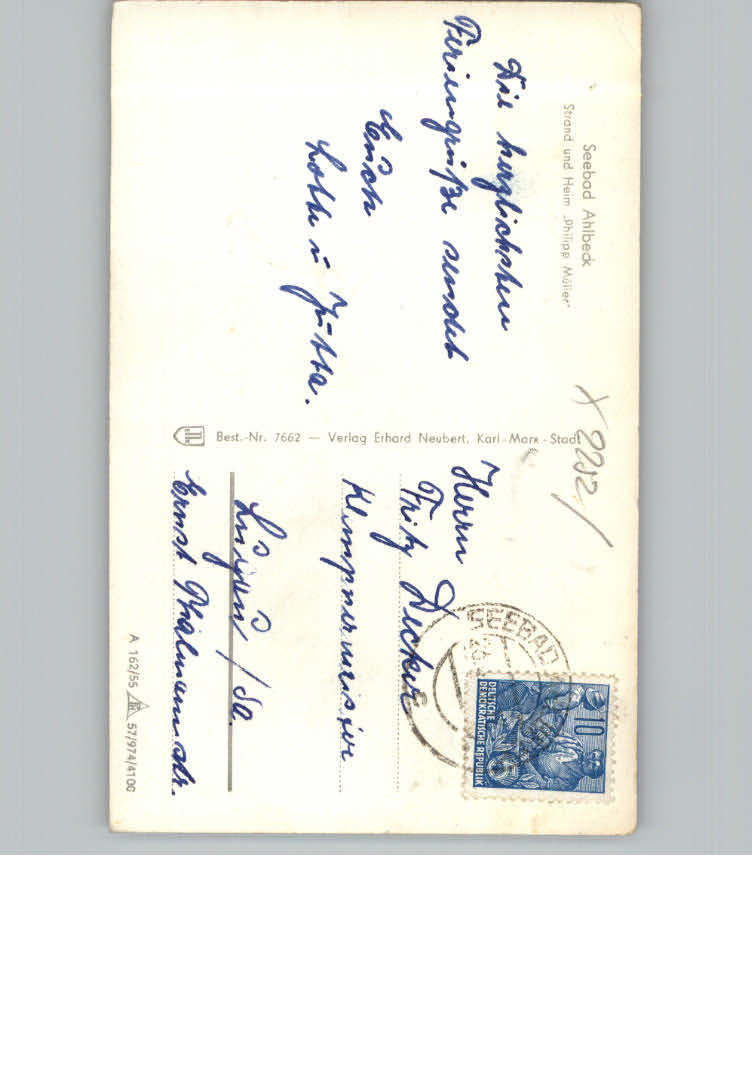 Seebad Ahlbeck
Strand und Heim „Philipp Müller"
Die herzlichsten
Feriengrüße sendet
Euch
Lotte u. Jutta.
Best.-Nr. 7662 — Verlag Erhard Neubert, Karl-Marx-Stadt
X 2252/
Herrn
Fritz Decker
Klempnermeister
Lugau / Sa.
Ernst Thälmannstr.
A 162/55 57/974/4100
SEEBAD
10
DEUTSCHE
DEMOKRATISCHE REPUBLIK